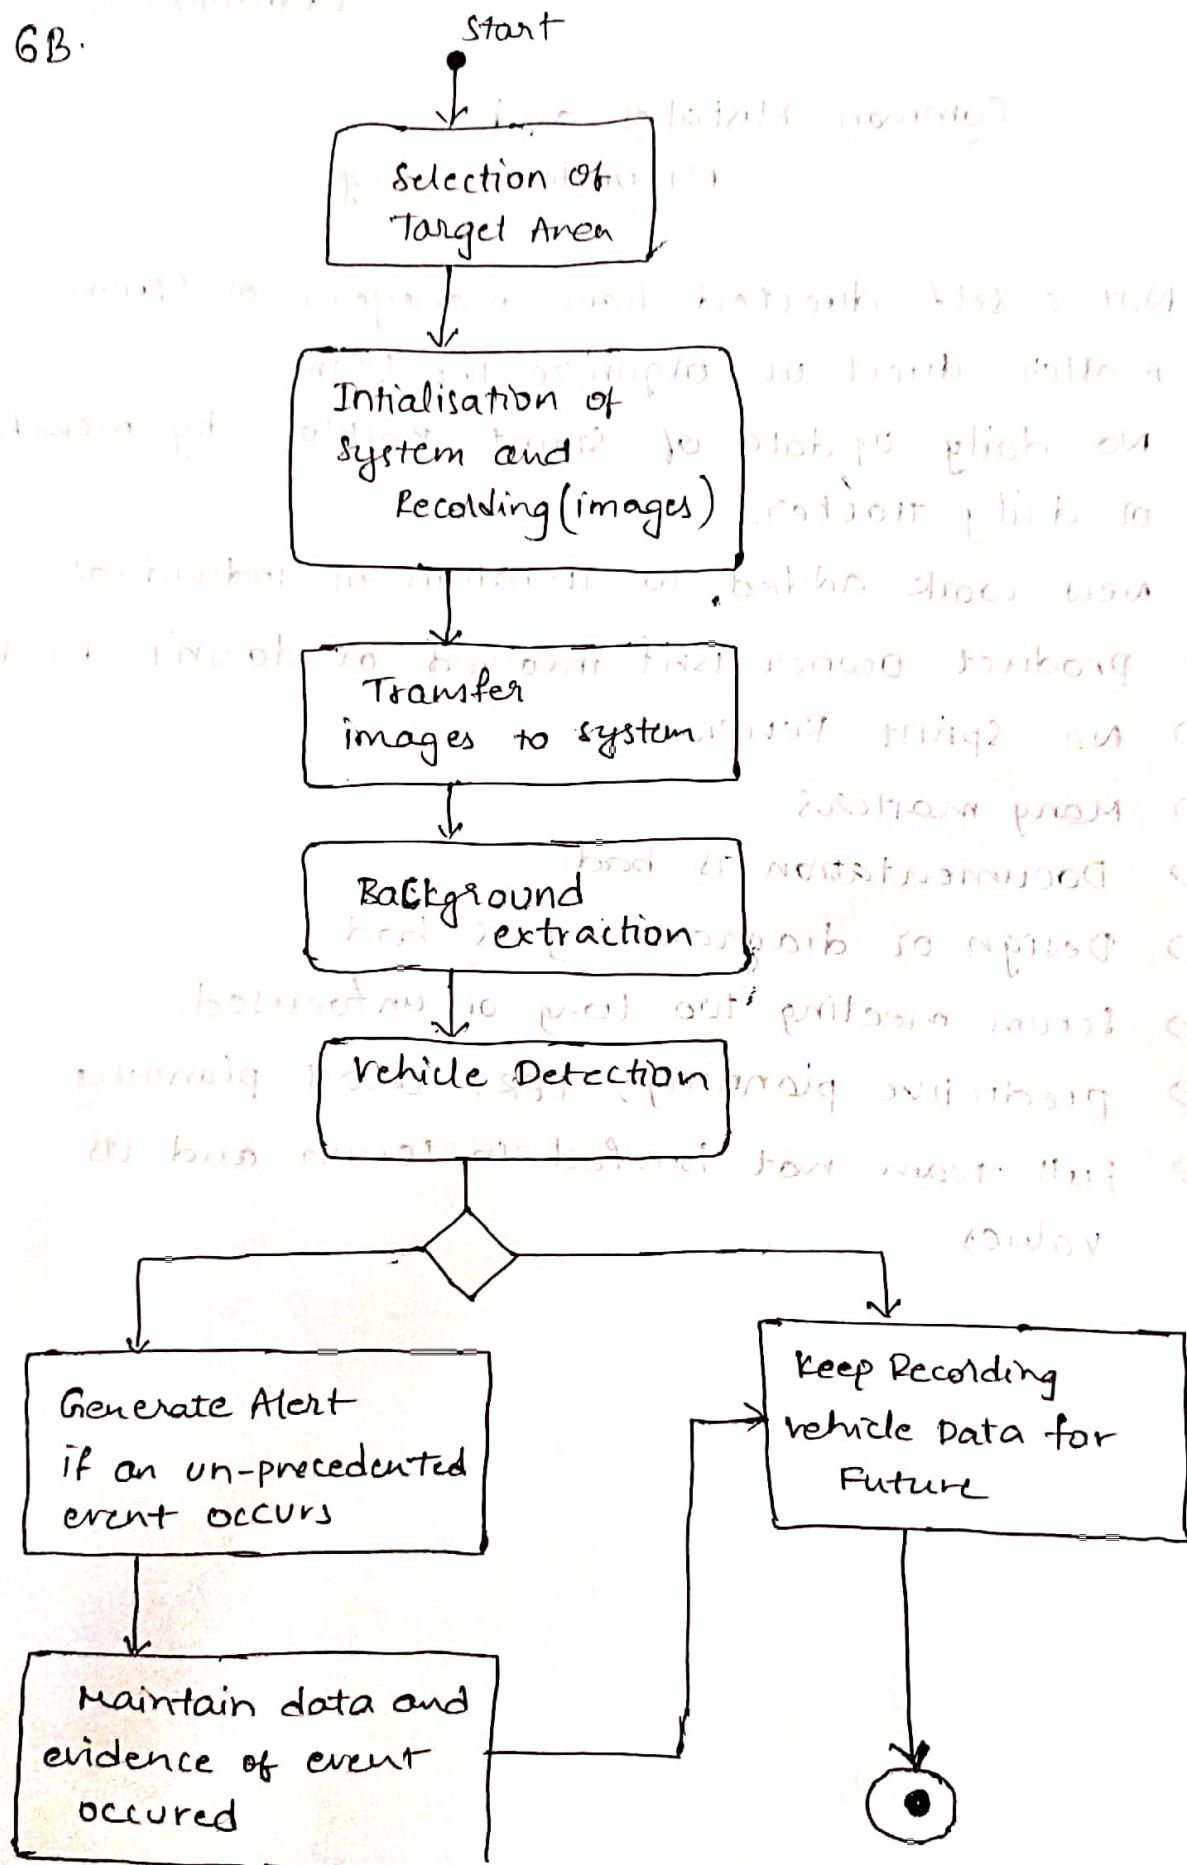 6B.
Start
Selection of
Target Area
Intialisation of
system and
Recolding (images)
Transfer
images to system
Background
extraction
Vehicle Detection
Generate Alert
if an un-precedented
event occurs
Keep Recording
vehicle Data for
Future
Maintain data and
evidence of event
occured